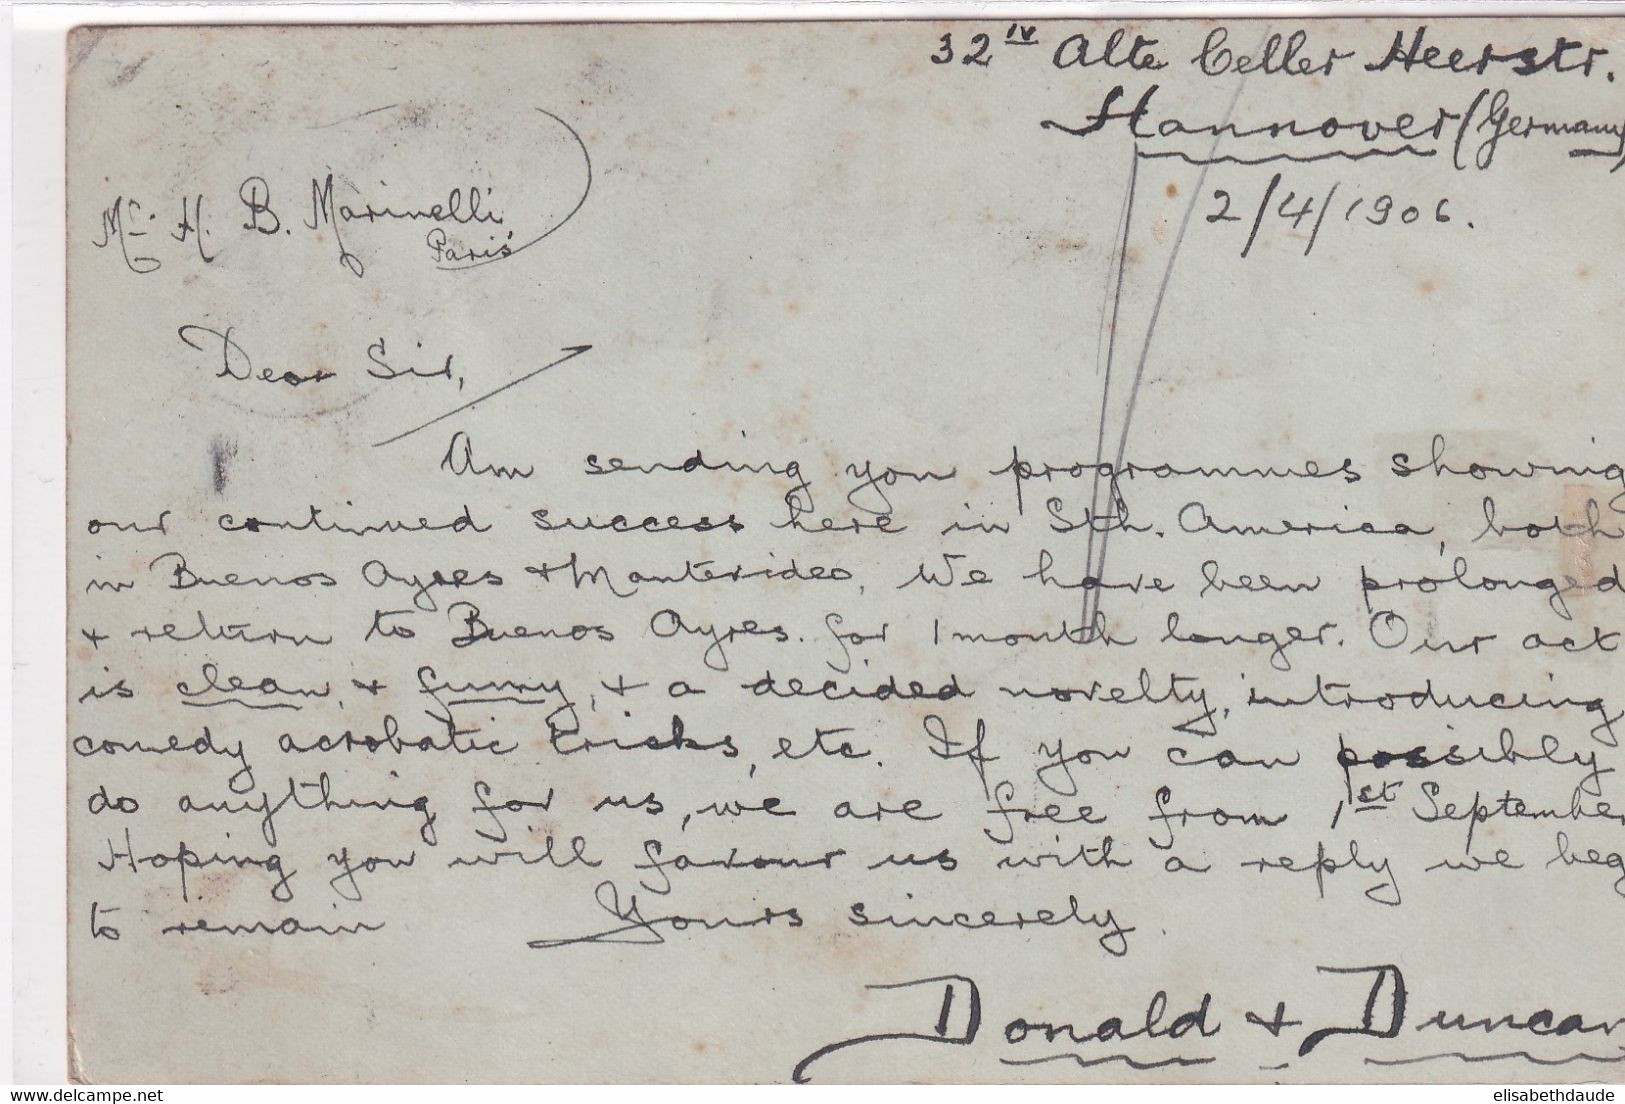 32 IV Alte Celler Heerstr.
Hannover (Germany)
2/4/1906.
Mr. H. B. Marinelli
Paris
Dear Sir,
Am sending you programmes showing
our continued success here in Sth. America, both
in Buenos Ayres & Montevideo. We have been prolonged
& return to Buenos Ayres. for 1 month longer. Our act
is clean, & funny, & a decided novelty, introducing
comedy acrobatic tricks, etc. If you can possibly
do anything for us, we are free from 1st September
Hoping you will favour us with a reply we beg
to remain Yours sincerely.
Donald & Duncan
www.delcampe.net
elisabethdaude